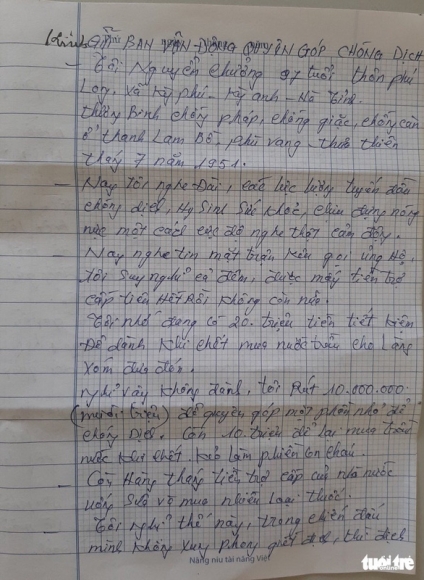 Kính Gửi BAN VẬN ĐỘNG QUYÊN GÓP CHỐNG DỊCH
- Tôi Nguyễn Chưởng 97 tuổi thôn phú
Long, xã Kỳ phú - Kỳ anh - Hà Tĩnh.
thương Binh chống pháp, chống giặc, chống càn
ở thanh Lam Bồ, phú vang, thừa thiên
tháng 7 năm 1951.
- Nay tôi nghe Đài, các lực lượng tuyến đầu
chống dịch, Hy Sinh Sức Khoẻ, chịu đựng nóng
nực một cách cực độ nghe thật cảm động.
- Nay nghe tin mặt trận kêu gọi ủng Hộ,
tôi Suy nghĩ cả đêm, được mấy tiền trợ
cấp tiêu Hết Rồi không còn nữa.
Tôi nhớ đang có 20 triệu tiền tiết kiệm
Để dành khi chết mua nước trầu cho Làng
xóm đưa đón.
nghĩ vậy không đành, tôi Rút 10.000.000
(mười triệu) để quyên góp một phần nhỏ để
chống Dịch. Còn 10 triệu để lại mua trầu
nước khi chết làm phiền con cháu.
- Còn Hàng tháng tiền trợ cấp của nhà nước
uống sữa và mua nhiều loại thuốc.
- Tôi nghĩ thế này, trong chiến đấu
mình không xung phong giết địch, thì địch
Nâng niu tài năng Việt
tuổi trẻ